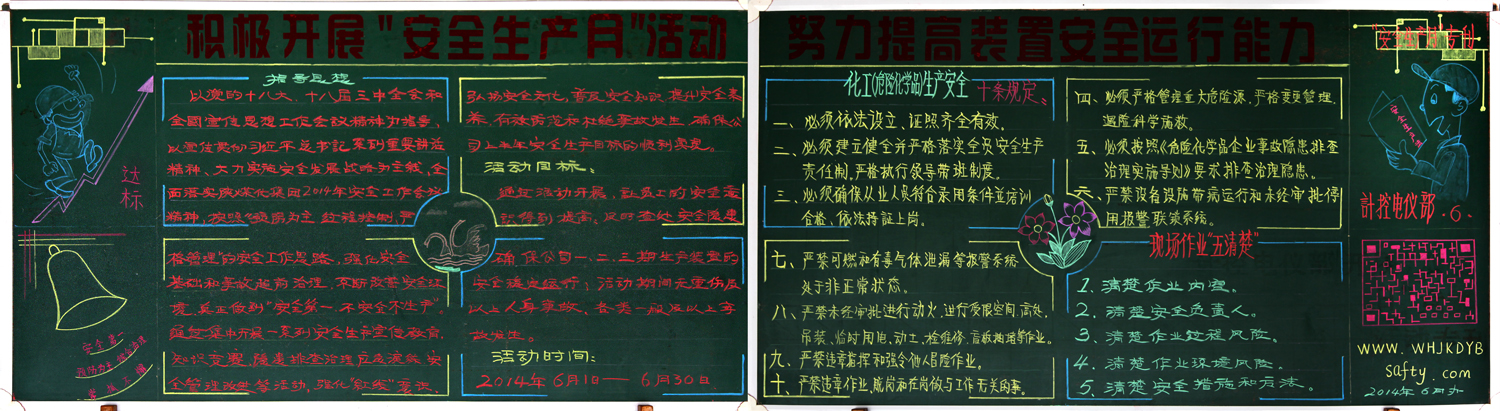 积极开展"安全生产月"活动
指导思想
以党的十八大、十八届三中全会和
全国宣传思想工作会议精神为指导，
以宣传贯彻习近平总书记系列重要讲话
精神、大力实施安全发展战略为主线，全
面落实陕煤化集团2014年安全工作会议
精神，按照《预防为主
格管理"的安全工作思路，强化安全
基础和事故超前治理，不断改善安全环
境，真正做到"安全第一，不安全不生产"。
通过集中开展一系列安全生产宣传教育、
知识竞赛，隐患排查治理应急演练、安
全管理改进等活动，强化"红线"意识、
弘扬安全文化，普及安全知识，提升安全素
养，有效防范和杜绝事故发生，确保公
司上半年安全生产目标的顺利实现。
活动目标：
通过活动开展，让员工的安全意
识得到提高；及时查处安全隐患
确保公司一、二、三期生产装置的
安全稳定运行；活动期间无重伤及
以上人身事故，各类一般及以上事
故发生。
活动时间：
2014年6月1日——6月30日
达标
安全第一
预防为主
努力提高装置安全运行能力
化工(危险化学品)生产安全 十条规定
一、必须依法设立、证照齐全有效。
二、必须建立健全并严格落实全员安全生产
责任制，严格执行领导带班制度。
三、必须确保从业人员符合录用条件并培训
合格、依法持证上岗。
四、必须严格管理重大危险源，严格变更管理，
遇险科学施救。
五、必须按照《危险化学品企业事故隐患排查
治理实施导则》要求排查治理隐患。
六、严禁设备设施带病运行和未经审批停
用报警联锁系统。
七、严禁可燃和有毒气体泄漏等报警系统
处于非正常状态。
八、严禁未经审批进行动火、进行受限空间、高处、
吊装、临时用电、动土、检维修、盲板抽堵等作业。
九、严禁违章指挥和强令他人冒险作业。
十、严禁违章作业、脱岗和在岗做与工作无关的事。
现场作业"五清楚"
1、清楚作业内容。
2、清楚安全负责人。
3、清楚作业过程风险。
4、清楚作业环境风险。
5、清楚安全措施和方法。
"安全生产月"专刊
安全生产
計控电仪部.6.
WWW. WHJKDYB
safty. com
2014年6月办